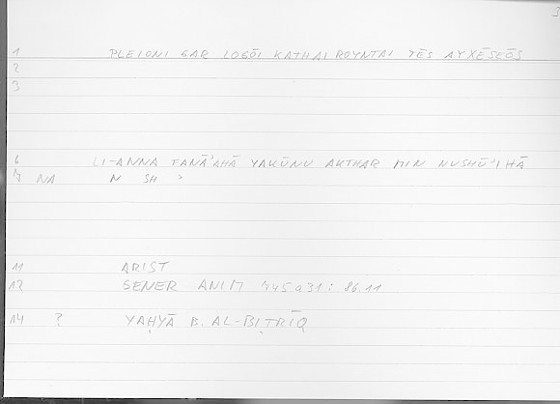 1 PLEIONI GAR LOGŌI KATHAIROYNTAI TĒS AYXĒSEŌS
2
3
6 LI-ANNA FANĀ'AHĀ YAKŪNU AKTHAR MIN NUSHŪ'IHĀ
7 NA N SH '
11 ARIST
12 GENER ANIM 745a31: 86.11
14 ? YAḤYĀ B. AL-BIṬRĪQ